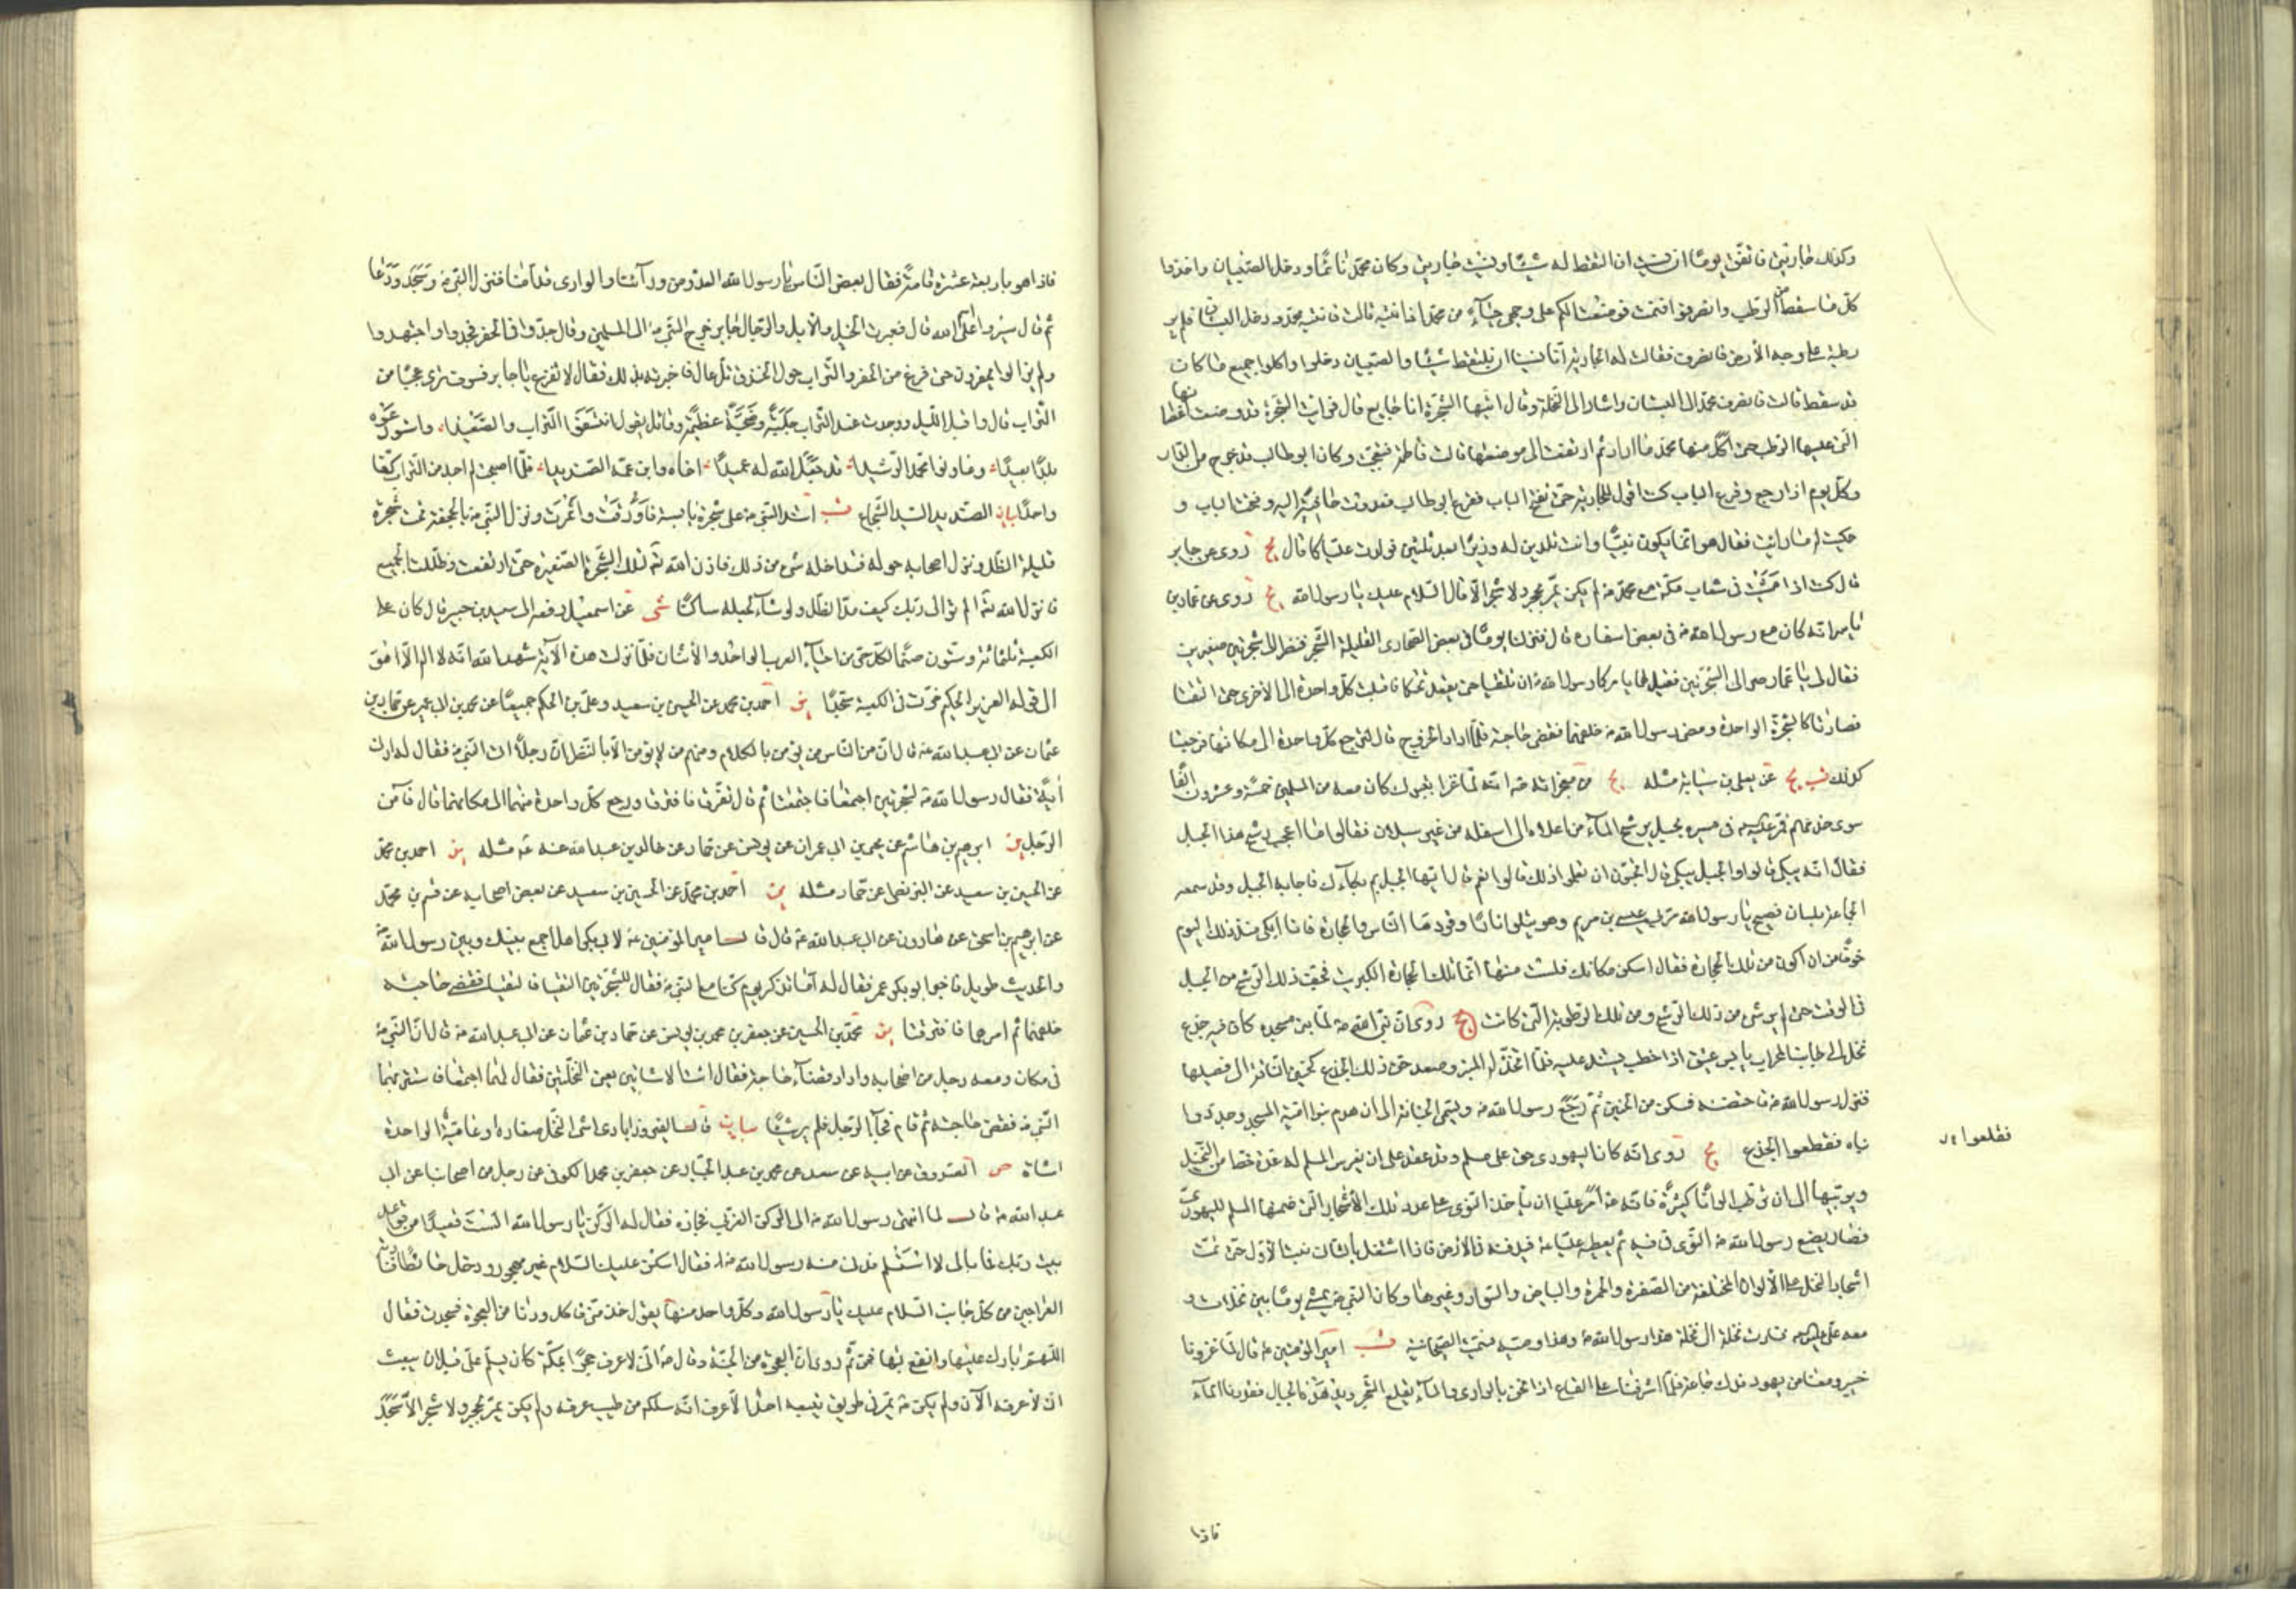 وكذلك جاريتي فاتفق يوما ان نسيت ان التقط له شيئا ونسيت جاريتي وكان محمد نائما ودخل الصبيان واخذوا
كل ما سقط من الرطب وانصرفوا فنمت فوضعت الكم على وجهي حياء من محمد اذا انتبه قالت فانتبه محمد ودخل البستان فلم ير
رطبة على وجه الأرض فانصرف فقالت له الجارية انا نسينا ان نلتقط شيئا والصبيان دخلوا واكلوا جميع ما كان
قد سقط قالت فانصرف محمد الى البستان واشار الى النخلة وقال ايتها الشجرة انا جايع قال فرايت الشجرة قد وضعت اغصانها
التي عليها الرطب حتى اكل منها محمد ما اراد ثم ارتفعت الى موضعها قالت فاطمة فتعجبت وكان ابو طالب قد خرج من الدار
وكل يوم اذا رجع وقرع الباب كنت اقول للجارية حتى تفتح الباب فقرع ابو طالب فعدوت حافية اليه وفتحت الباب و
حكيت له ما رايت فقال هو انما يكون نبيا وانت تلدين له وزيرا بعد ثلثين فولدت عليا كما قال يج روى عن جابر
قال كنت اذا مشيت في شعاب مكة مع محمد ص لم يكن يمر بحجر ولا شجر الا قال السلام عليك يا رسول الله يج روى عن عمار بن
ياسر انه كان مع رسول الله ص في بعض اسفاره قال فنزلنا يوما في بعض الصحارى القليلة الشجر فنظر الى شجرتين صغيرتين
فقال لي يا عمار صر الى الشجرتين فقل لهما يامركما رسول الله ص ان تلتقيا حتى يقعد تحتكما فاقبلت كل واحدة الى الأخرى حتى التقتا
فصارتا كالشجرة الواحدة ومضى رسول الله ص خلفهما فقضى حاجته فلما اراد الخروج قال لترجع كل واحدة الى مكانها فرجعتا
كذلك قب يج عن يعلى بن سيابة مثله يج من معجزاته ص انه لما غزا بتبوك كان معه من المسلمين خمسة وعشرون الفا
سوى خدمهم فمر ع في مسيره بجبل يرشح الماء من اعلاه الى اسفله من غير سيلان فقالوا ما اعجب رشح هذا الجبل
فقال انه يبكي قالوا والجبل يبكي قال اتحبون ان تعلموا ذلك قالوا نعم قال ايها الجبل مم بكاؤك فاجابه الجبل وقد سمعه
الجماعة بلسان فصيح يا رسول الله مر بي عيسى بن مريم وهو يتلو نارا وقودها الناس والحجارة فانا ابكي منذ ذلك اليوم
خوفا من ان اكون من تلك الحجارة فقال اسكن مكانك فلست منها انما تلك الحجارة الكبريت فجف ذلك الرشح من الجبل
في الوقت حتى لم ير شي من ذلك الرشح ومن تلك الرطوبة التي كانت يج روى ان نبي الله ص لما بنى مسجده كان فيه جذع
نخل الى جانب المحراب يابس عتيق اذا خطب يستند عليه فلما اتخذ له المنبر وصعد حن ذلك الجذع كحنين الناقة الى فصيلها
فنزل رسول الله ص فاحتضنه فسكن من الحنين ثم رجع رسول الله ص ويسمى الحنانة الى ان هدم بنو امية المسجد وجددوا
بناه فقطعوا الجذع يج روى انه كان ليهودي حق على مسلم وقد عقد على ان يغرس المسلم له عدة خصا من النخيل
فقلعوا
ويربيها الى ان ترطب الوانا كثيرة فانه ص امر عليا ان ياخذ النوى على عدد تلك الأشجار التي ضمنها المسلم لليهودي
فصار يضع رسول الله ص النوى في فيه ثم يعطيه عليا ع فيدفنه في الأرض فاذا اشتغل بالثاني نبت الأول حتى تمت
اشجار النخل على الألوان المختلفة من الصفرة والحمرة والبياض والسواد وغيرها وكان النبي ص يمشي يوما بين نخلات و
معه علي ع فنادت نخلة الى نخلة هذا رسول الله ص وهذا وصيه فسميت الصيحانية قب امير المؤمنين ع قال لما غزونا
خيبر ومعنا من يهود فدك جماعة فلما اشرفنا على القاع اذا نحن بالوادي والماء يقلع الشجر ويدهده الجبال فقدرنا الماء
فاذا
فاذا هو باربعة عشرة قامة فقال بعض الناس يا رسول الله العدو من ورآئنا والوادى قدامنا فنزل النبي ص وسجد ودعا
ثم قال سيروا على اسم الله قال فعبرت الخيل والأبل والرجال جابر خرج النبي ص الى المسلمين وقال جدوا في الحفر فجدوا واجتهدوا
ولم يزالوا يحفرون حتى فرغ من الحفر والتراب حول الخندق تل عال فاخبرته بذلك فقال لا تفزع يا جابر فسوف ترى عجبا من
التراب قال واقبل الليل ووجدت عند التراب جلبة وضجة عظيمة وقائل يقول انتسفوا التراب والصعيدا واستودعوه
بلدا بعيدا وعاونوا محمد الرشيدا قد جعل الله له عميدا اخاه وابن عمه الصنديدا فلما اصبحت لم اجد من التراب كفا
واحدا بيان الصنديد السيد الشجاع قب استند النبي ص على شجرة يابسة فاورقت واثمرت ونزل النبي ص بالجحفة تحت شجرة
قليلة الظل ونزل اصحابه حوله فتداخله شي من ذلك فاذن الله تع لتلك الشجرة الصغيرة حتى ارتفعت وظللت الجميع
فانزل الله تع الم تر الى ربك كيف مد الظل ولو شاء لجعله ساكنا شى عن اسمعيل رفعه الى سعيد بن جبير قال كان على
الكعبة ثلثمائة وستون صنما لكل حي من احياء العرب الواحد والأثنان فلما نزلت هذه الآية شهد الله انه لا اله الا هو
الى قوله العزيز الحكيم خرت في الكعبة سجدا ير احمد بن محمد عن الحسين بن سعيد وعلي بن الحكم جميعا عن محمد بن ابي عمير عن حماد بن
عثمان عن ابي عبد الله ع قال ان من الناس من يؤمن بالكلام ومنهم من لا يؤمن الا بالنظر ان رجلا اتى النبي ص فقال له ارني
آية فقال رسول الله ص لشجرتين اجتمعا فاجتمعتا ثم قال تفرقا فافترقتا ورجع كل واحدة منهما الى مكانهما قال فآمن
الرجل ير ابرهيم بن هاشم عن يحيى بن ابي عمران عن يونس عن حماد عن خالد بن عبد الله عنه ع مثله ير احمد بن محمد
عن الحسين بن سعيد عن البزنطي عن حماد مثله ير احمد بن محمد عن الحسين بن سعيد عن بعض اصحابه عن قثم بن محمد
عن ابرهيم بن اسحق عن هارون عن ابي عبد الله ع قال قال امير المؤمنين ع لابي بكر هل اجمع بينك وبين رسول الله ص
والحديث طويل فاخبر ابو بكر عمر فقال له اما تذكر يوم كنا مع النبي ص فقال للشجرتين التقيا فالتقتا فقضى حاجته
خلفهما ثم امرهما فافترقتا ير محمد بن الحسين عن جعفر بن محمد بن يونس عن حماد بن عثمان عن ابي عبد الله ع قال ان النبي ص
في مكان ومعه رجل من اصحابه واراد قضاء حاجة فقال ائت الاشائين يعني النخلتين فقال لهما اجتمعا فاستتر بهما
النبي ص فقضى حاجته ثم قام فجاء الرجل فلم ير شيئا بيان قال الفيروزابادى اشاء النخل صغاره او عامته الواحدة
اشاءة ص الصدوق عن ابيه عن سعد عن محمد بن عبد الجبار عن جعفر بن محمد الكوفي عن رجل من اصحابنا عن ابي
عبد الله ع قال لما انتهى رسول الله ص الى الركن الغربي فجازه فقال له الركن يا رسول الله الست قعيدا من قواعد
بيت ربك فما بالي لا استلم فدنا منه رسول الله ص فقال اسكن عليك السلام غير مهجور ودخل حائطا فنادته
العراجين من كل جانب السلام عليك يا رسول الله وكل واحد منها يقول خذ مني فاكل ودنا من العجوة فسجدت فقال
اللهم بارك عليها وانفع بها فمن ثم روى ان العجوة من الجنة وقال ص اني لاعرف حجرا بمكة كان يسلم علي قبل ان ابعث
اني لأعرفه الآن ولم يكن ص يمر في طريق يتبعه احد الا عرف انه سلكه من طيب عرفه ولم يكن يمر بحجر ولا شجر الا سجد